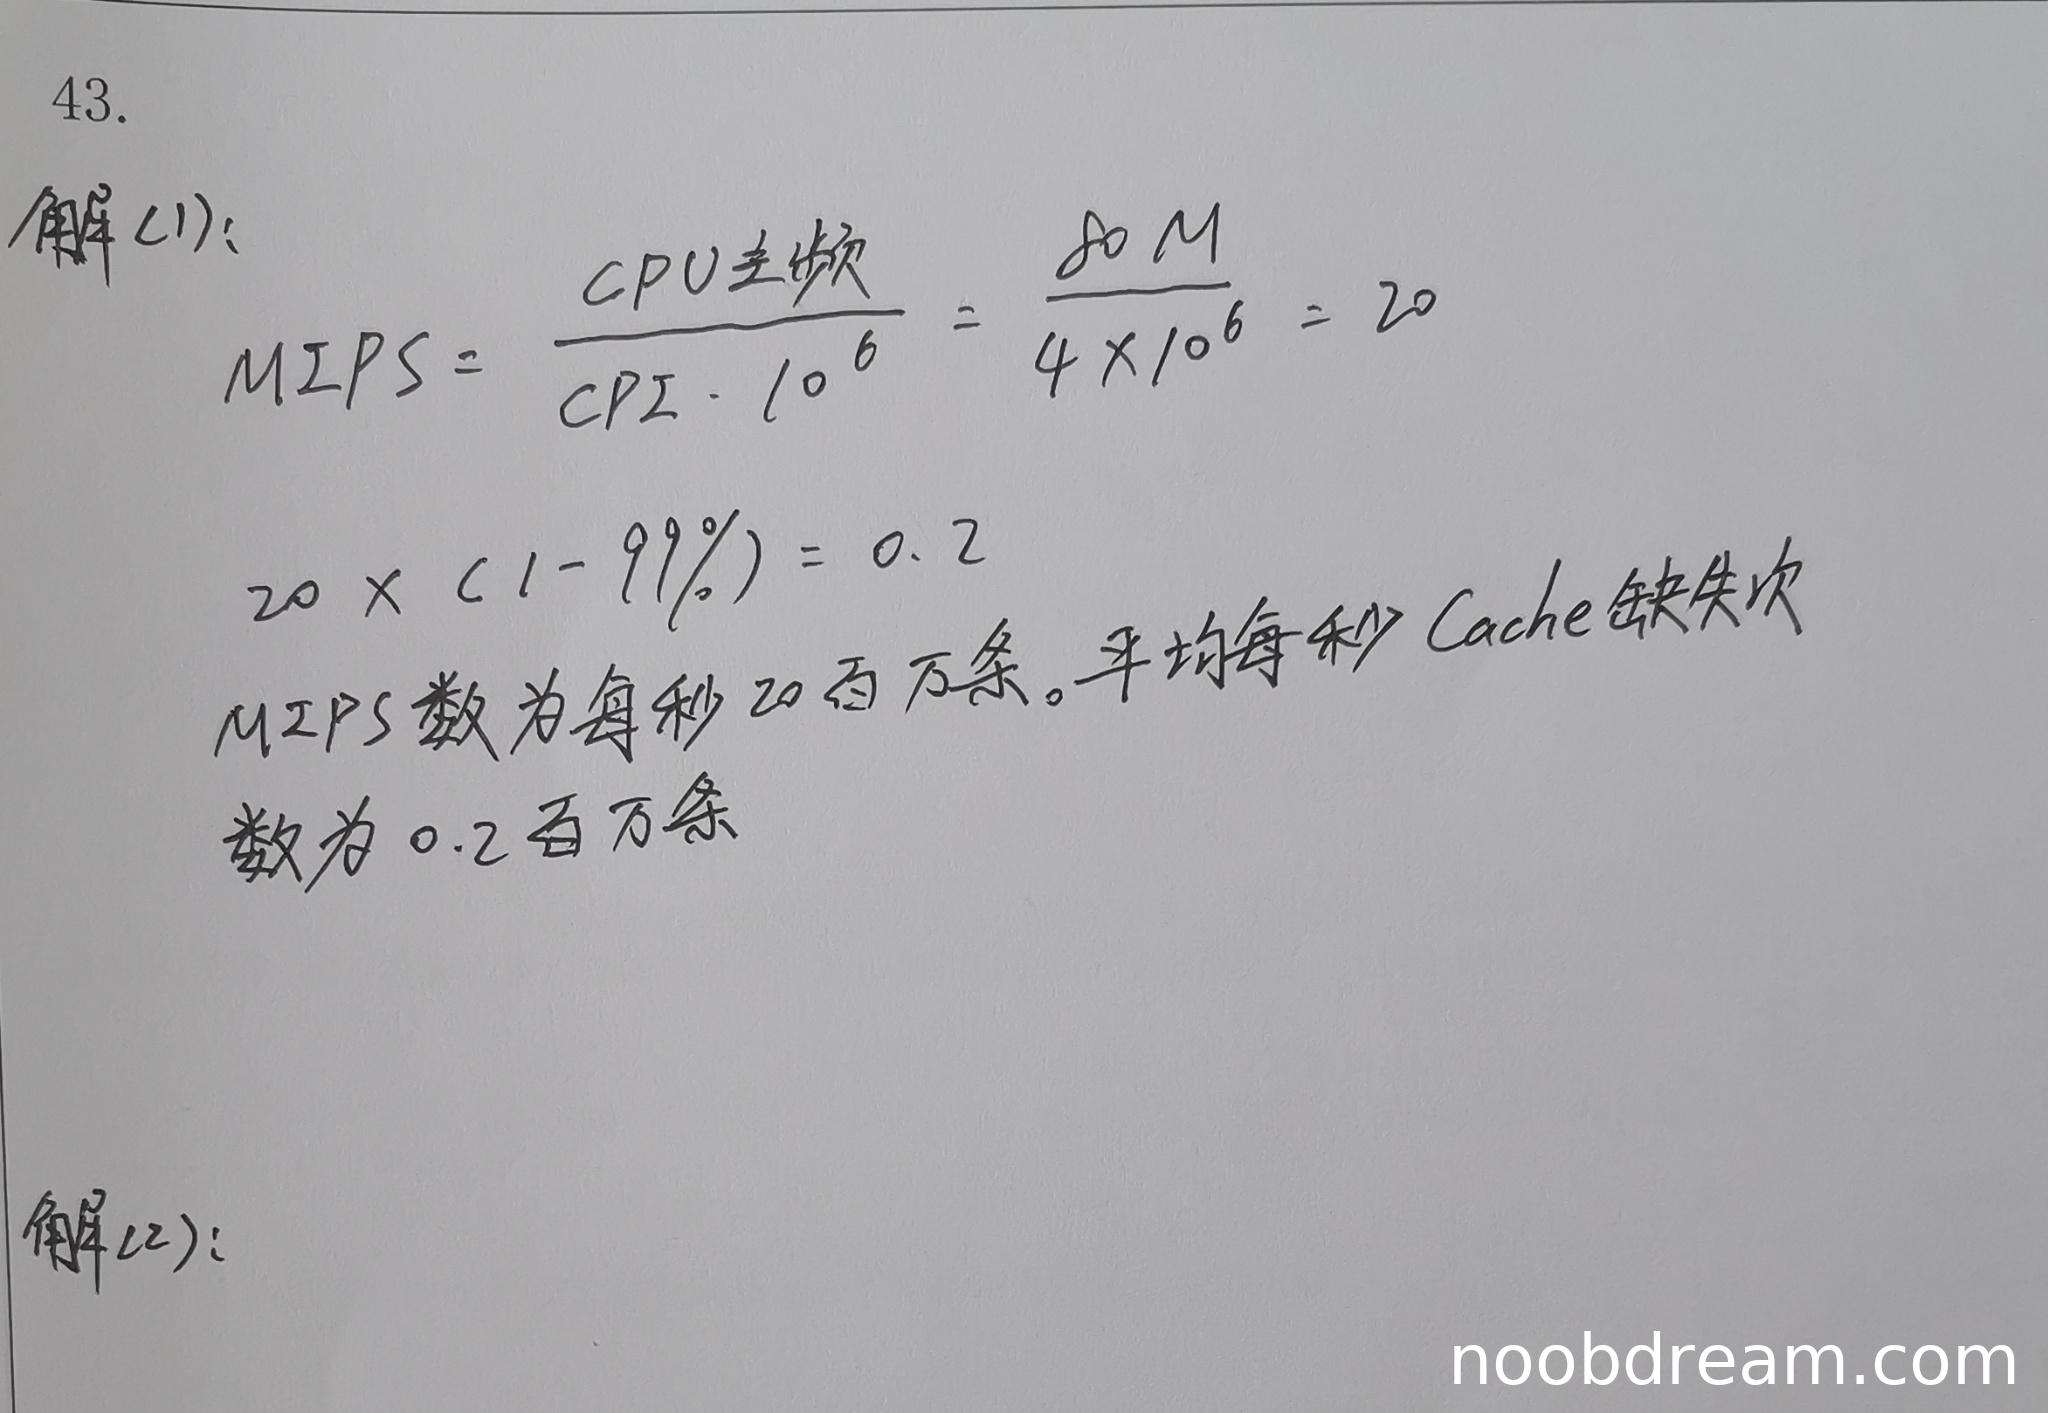 43.
解(1):
MIPS = CPU主频 / CPI · 10^6 = 80M / 4×10^6 = 20
20 × (1-99%) = 0.2
MIPS数为每秒20百万条。平均每秒Cache缺失次
数为0.2百万条
解(2):
noobdream.com